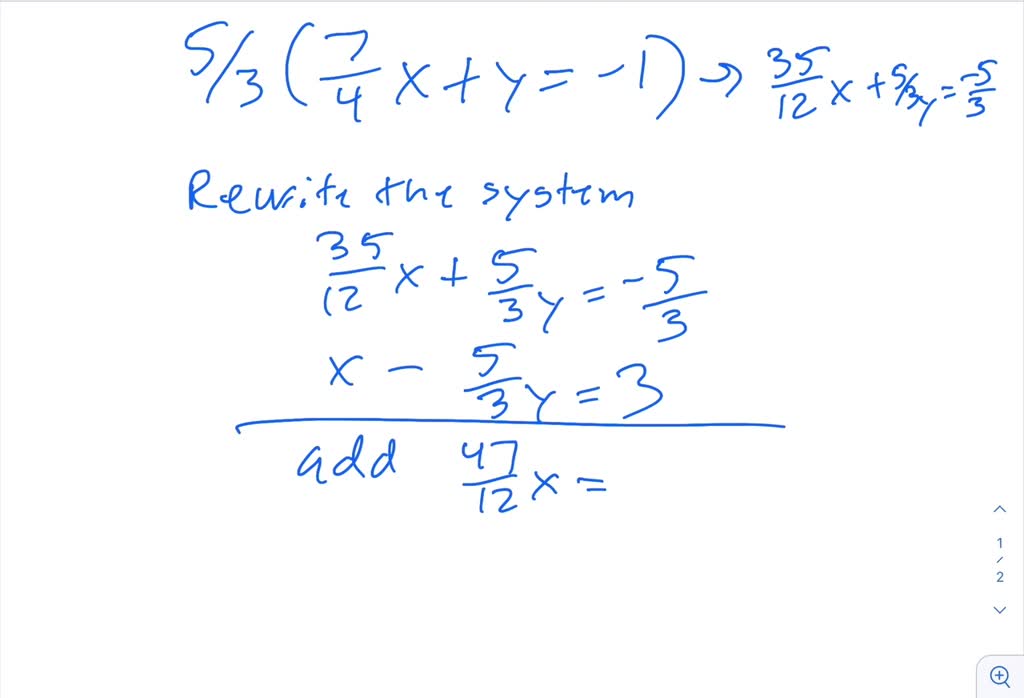 5/3 (7/4 x + y = -1) → 35/12 x + 5/3 y = -5/3
Rewrite the system
35/12 x + 5/3 y = -5/3
x - 5/3 y = 3
add 47/12 x =
1
/
2